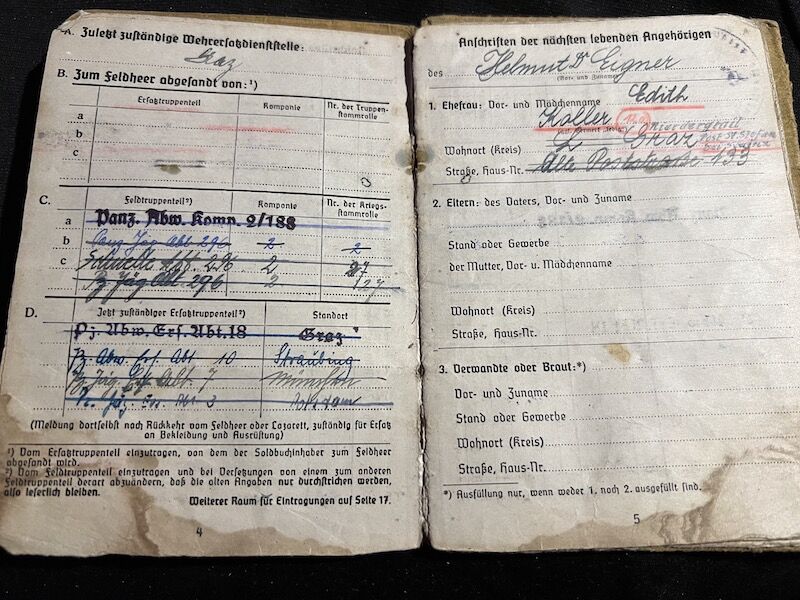 A. Zuletzt zuständige Wehrersatzdienststelle:
Graz
B. Zum Feldheer abgesandt von:¹)
Ersatztruppenteil Kompanie Nr. der Truppenstammrolle
a
b
c
C. Feldtruppenteil²) Kompanie Nr. der Kriegsstammrolle
a Panz. Abw. Komp. 2/188
b Panz Jäg Abt 296 2 2
c Schnelle Abt. 296 2 27
Pz Jäg Abt 296 2 127
D. Jetzt zuständiger Ersatztruppenteil²) Standort
Pz. Abw. Ers. Abt. 18 Graz
Pz. Abw. Ers Abt 10 Straubing
Pz. Jäg. Ers. Abt. 7 München
Pz. Jäg. Ers Abt 3 Potsdam
(Meldung dortselbst nach Rückkehr vom Feldheer oder Lazarett, zuständig für Ersatz
an Bekleidung und Ausrüstung)
¹) Vom Ersatztruppenteil einzutragen, von dem der Soldbuchinhaber zum Feldheer
abgesandt wird.
²) Vom Feldtruppenteil einzutragen und bei Versetzungen von einem zum anderen
Feldtruppenteil derart abzuändern, daß die alten Angaben nur durchstrichen werden,
also leserlich bleiben.
Weiterer Raum für Eintragungen auf Seite 17.
4
Anschriften der nächsten lebenden Angehörigen
des Helmut Dr Eigner
(Vor- und Zuname)
1. Ehefrau: Vor- und Mädchenname Edith
Koller
Wohnort (Kreis) Graz
Straße, Haus-Nr. Alte Poststrasse 133
2. Eltern: des Vaters, Vor- und Zuname
Stand oder Gewerbe
der Mutter, Vor- u. Mädchenname
Wohnort (Kreis)
Straße, Haus-Nr.
3. Verwandte oder Braut:*)
Vor- und Zuname
Stand oder Gewerbe
Wohnort (Kreis)
Straße, Haus-Nr.
*) Ausfüllung nur, wenn weder 1. noch 2. ausgefüllt sind.
5